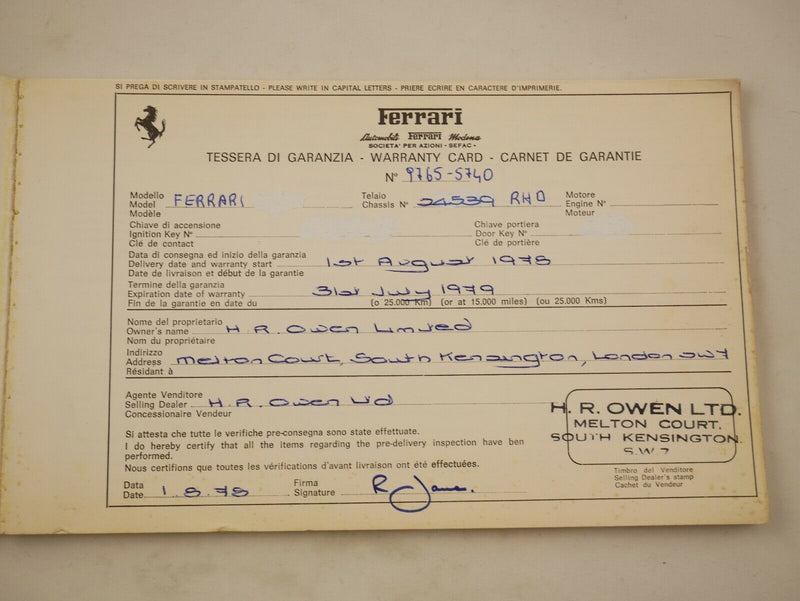 SI PREGA DI SCRIVERE IN STAMPATELLO - PLEASE WRITE IN CAPITAL LETTERS - PRIERE ECRIRE EN CARACTERE D'IMPRIMERIE.
Ferrari
Automobili Ferrari Modena
SOCIETA' PER AZIONI - SEFAC -
TESSERA DI GARANZIA - WARRANTY CARD - CARNET DE GARANTIE
N° 9765-5740
Modello Telaio Motore
Model FERRARI Chassis N° 24539 RHD Engine N°
Modèle Moteur
Chiave di accensione Chiave portiera
Ignition Key N° Door Key N°
Clé de contact Clé de portière
Data di consegna ed inizio della garanzia
Delivery date and warranty start 1st August 1978
Date de livraison et début de la garantie
Termine della garanzia
Expiration date of warranty 31st July 1979
Fin de la garantie en date du (o 25.000 Km) (or at 15.000 miles) (ou 25.000 Kms)
Nome del proprietario
Owner's name H. R. Owen Limited
Nom du propriétaire
Indirizzo
Address Melton Court, South Kensington, London SW7
Résidant à
Agente Venditore
Selling Dealer H. R. Owen Ltd
Concessionaire Vendeur
H. R. OWEN LTD.
MELTON COURT.
SOUTH KENSINGTON.
S.W.7
Si attesta che tutte le verifiche pre-consegna sono state effettuate.
I do hereby certify that all the items regarding the pre-delivery inspection have ben
performed.
Nous certifions que toutes les vérifications d'avant livraison ont été effectuées.
Timbro del Venditore
Selling Dealer's stamp
Cachet du Vendeur
Data Firma
Date 1.8.78 Signature